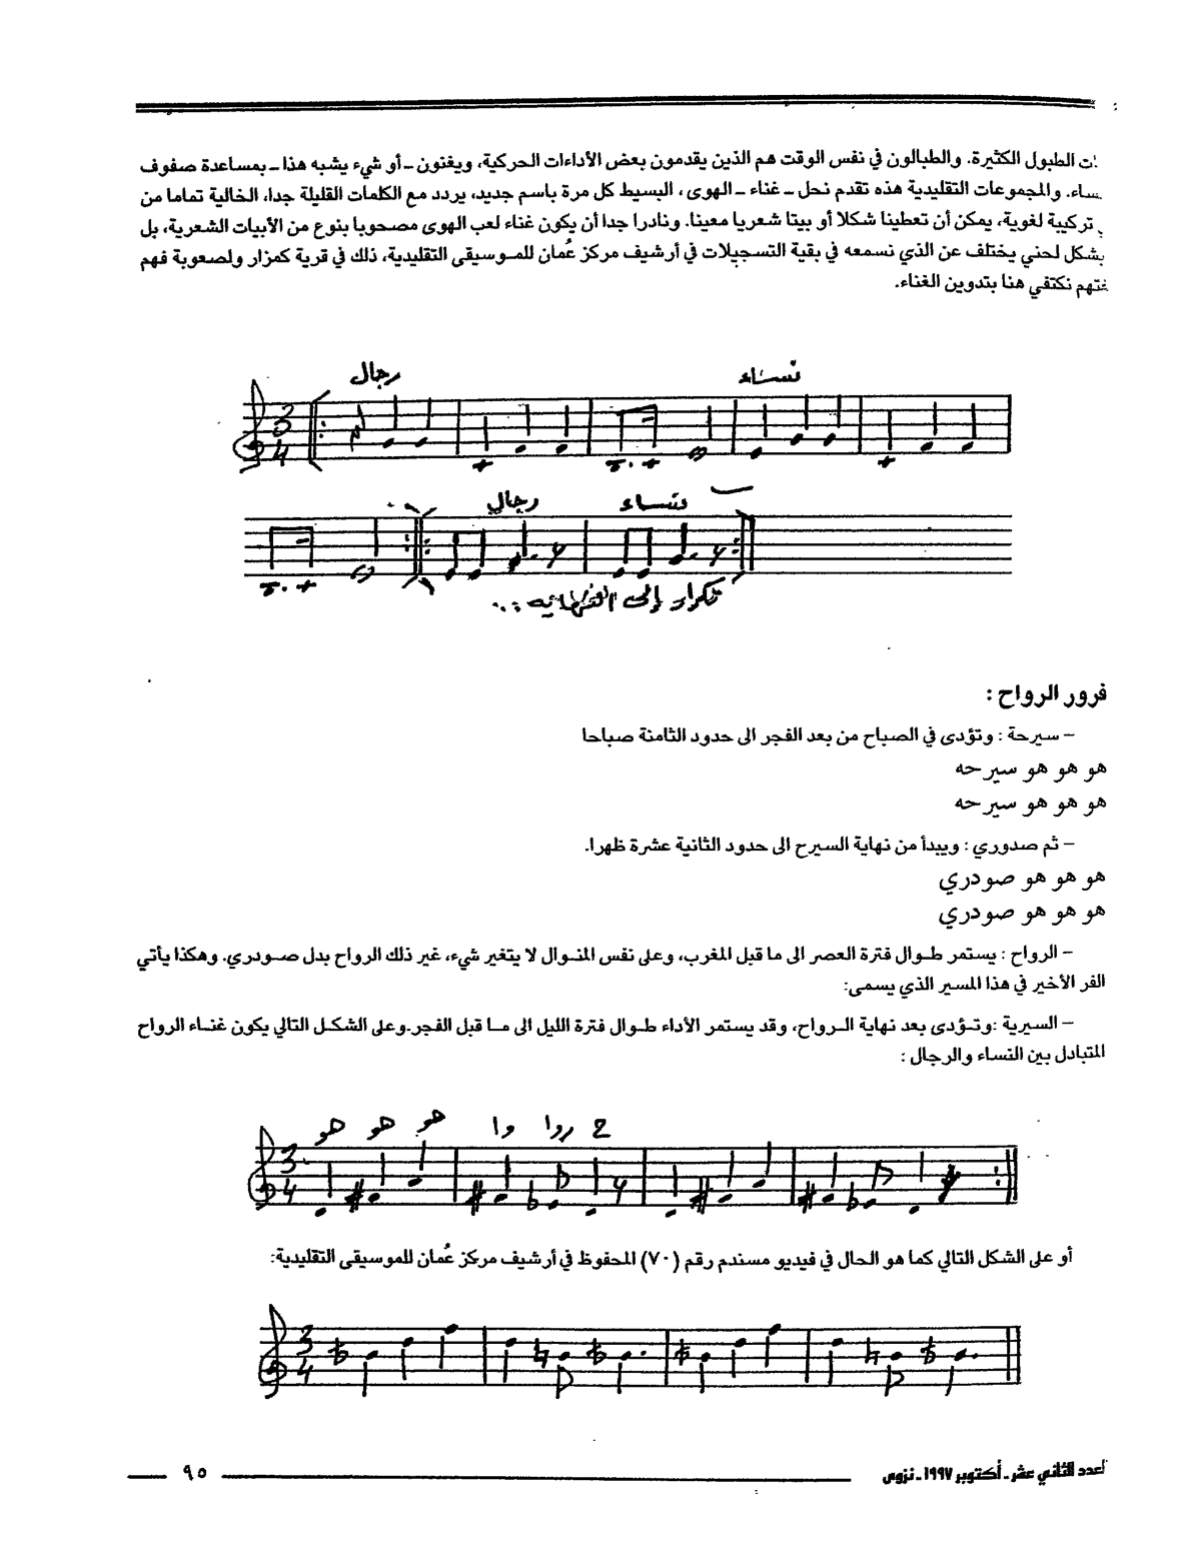 ت الطبول الكثيرة. والطبالون في نفس الوقت هم الذين يقدمون بعض الأداءات الحركية، ويغنون ـ أو شيء يشبه هذا ـ بمساعدة صفوف
ساء. والمجموعات التقليدية هذه تقدم نحل ـ غناء ـ الهوى، البسيط كل مرة باسم جديد، يردد مع الكلمات القليلة جدا، الخالية تماما من
تركيبة لغوية، يمكن أن تعطينا شكلا أو بيتا شعريا معينا. ونادرا جدا أن يكون غناء لعب الهوى مصحوبا بنوع من الأبيات الشعرية، بل
بشكل لحني يختلف عن الذي نسمعه في بقية التسجيلات في أرشيف مركز عُمان للموسيقى التقليدية، ذلك في قرية كمزار ولصعوبة فهم
غتهم نكتفي هنا بتدوين الغناء.
رجال نساء
3
4
رجال نساء
تكرار إلى النهاية ...
فرور الرواح :
– سيرحة : وتؤدى في الصباح من بعد الفجر الى حدود الثامنة صباحا
هو هو هو سيرحه
هو هو هو سيرحه
– ثم صدوري : ويبدأ من نهاية السيرح الى حدود الثانية عشرة ظهرا.
هو هو هو صودري
هو هو هو صودري
– الرواح : يستمر طوال فترة العصر الى ما قبل المغرب، وعلى نفس المنوال لا يتغير شيء، غير ذلك الرواح بدل صودري. وهكذا يأتي
الفر الأخير في هذا المسير الذي يسمى:
– السيرية :وتؤدى بعد نهاية الرواح، وقد يستمر الأداء طوال فترة الليل الى ما قبل الفجر.وعلى الشكل التالي يكون غناء الرواح
المتبادل بين النساء والرجال :
هو هو هو وا روا ح
3
4
أو على الشكل التالي كما هو الحال في فيديو مسندم رقم (٧٠) المحفوظ في أرشيف مركز عُمان للموسيقى التقليدية:
3
4
لعدد الثاني عشر ـ أكتوبر ١٩٩٧ ـ نزوى
٩٥